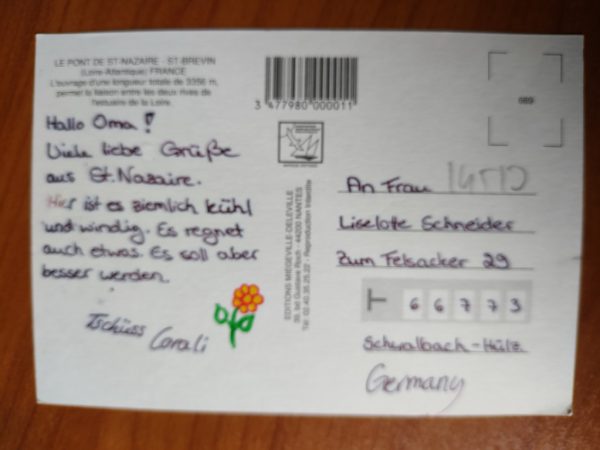 LE PONT DE ST-NAZAIRE - ST-BREVIN
(Loire-Atlantique) FRANCE
L'ouvrage d'une longueur totale de 3356 m,
permet la liaison entre les deux rives de
l'estuaire de la Loire.
3 477980 000011
Hallo Oma!
Viele liebe Grüße
aus St. Nazaire.
Hier ist es ziemlich kühl
und windig. Es regnet
auch etwas. Es soll aber
besser werden.
Tschüss
Corali
EDITIONS MIEGEVILLE-DELEVILLE
30, bd Gustave Roch - 44200 NANTES
Tél. 02.40.35.25.22 - Reproduction interdite
089
An Frau
Liselotte Schneider
Zum Felsacker 29
66773
Schwalbach-Hülz.
Germany